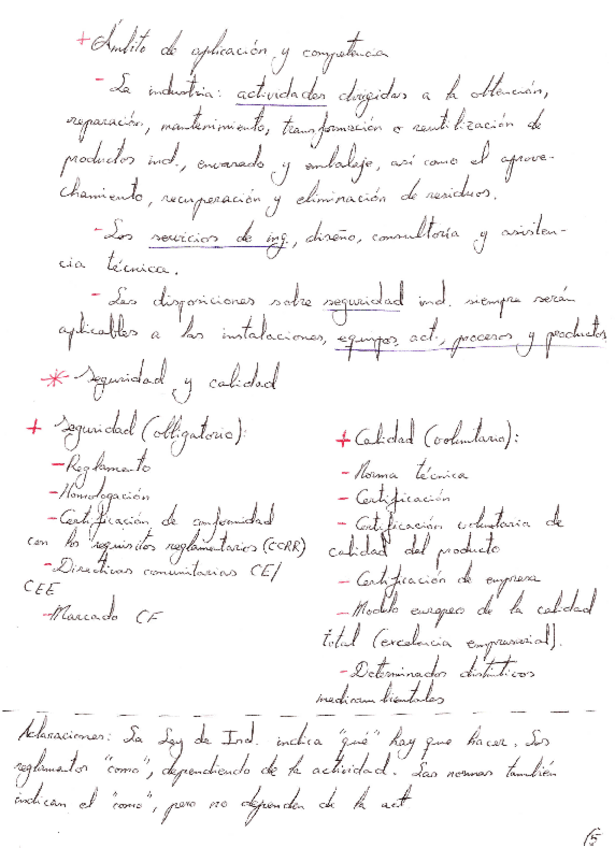 + Ámbito de aplicación y competencia
- La industria: actividades dirigidas a la obtención,
reparación, mantenimiento, transformación o reutilización de
productos ind., envasado y embalaje, así como el aprove-
chamiento, recuperación y eliminación de residuos.
- Los servicios de ing., diseño, consultoría y asisten-
cia técnica.
- Las disposiciones sobre seguridad ind. siempre serán
aplicables a las instalaciones, equipos, act., procesos y productos
* Seguridad y calidad
+ Seguridad (obligatorio):
- Reglamento
- Homologación
- Certificación de conformidad
con los requisitos reglamentarios (CCRR)
- Directivas comunitarias CE/
CEE
- Marcado CE
+ Calidad (voluntario):
- Norma técnica
- Certificación
- Certificación voluntaria de
calidad del producto
- Certificación de empresa
- Modelo europeo de la calidad
total (excelencia empresarial).
- Determinados distintivos
medioambientales
Aclaraciones: La Ley de Ind. indica "qué" hay que hacer. Los
reglamentos "como", dependiendo de la actividad. Las normas también
indican el "como", pero no dependen de la act
15